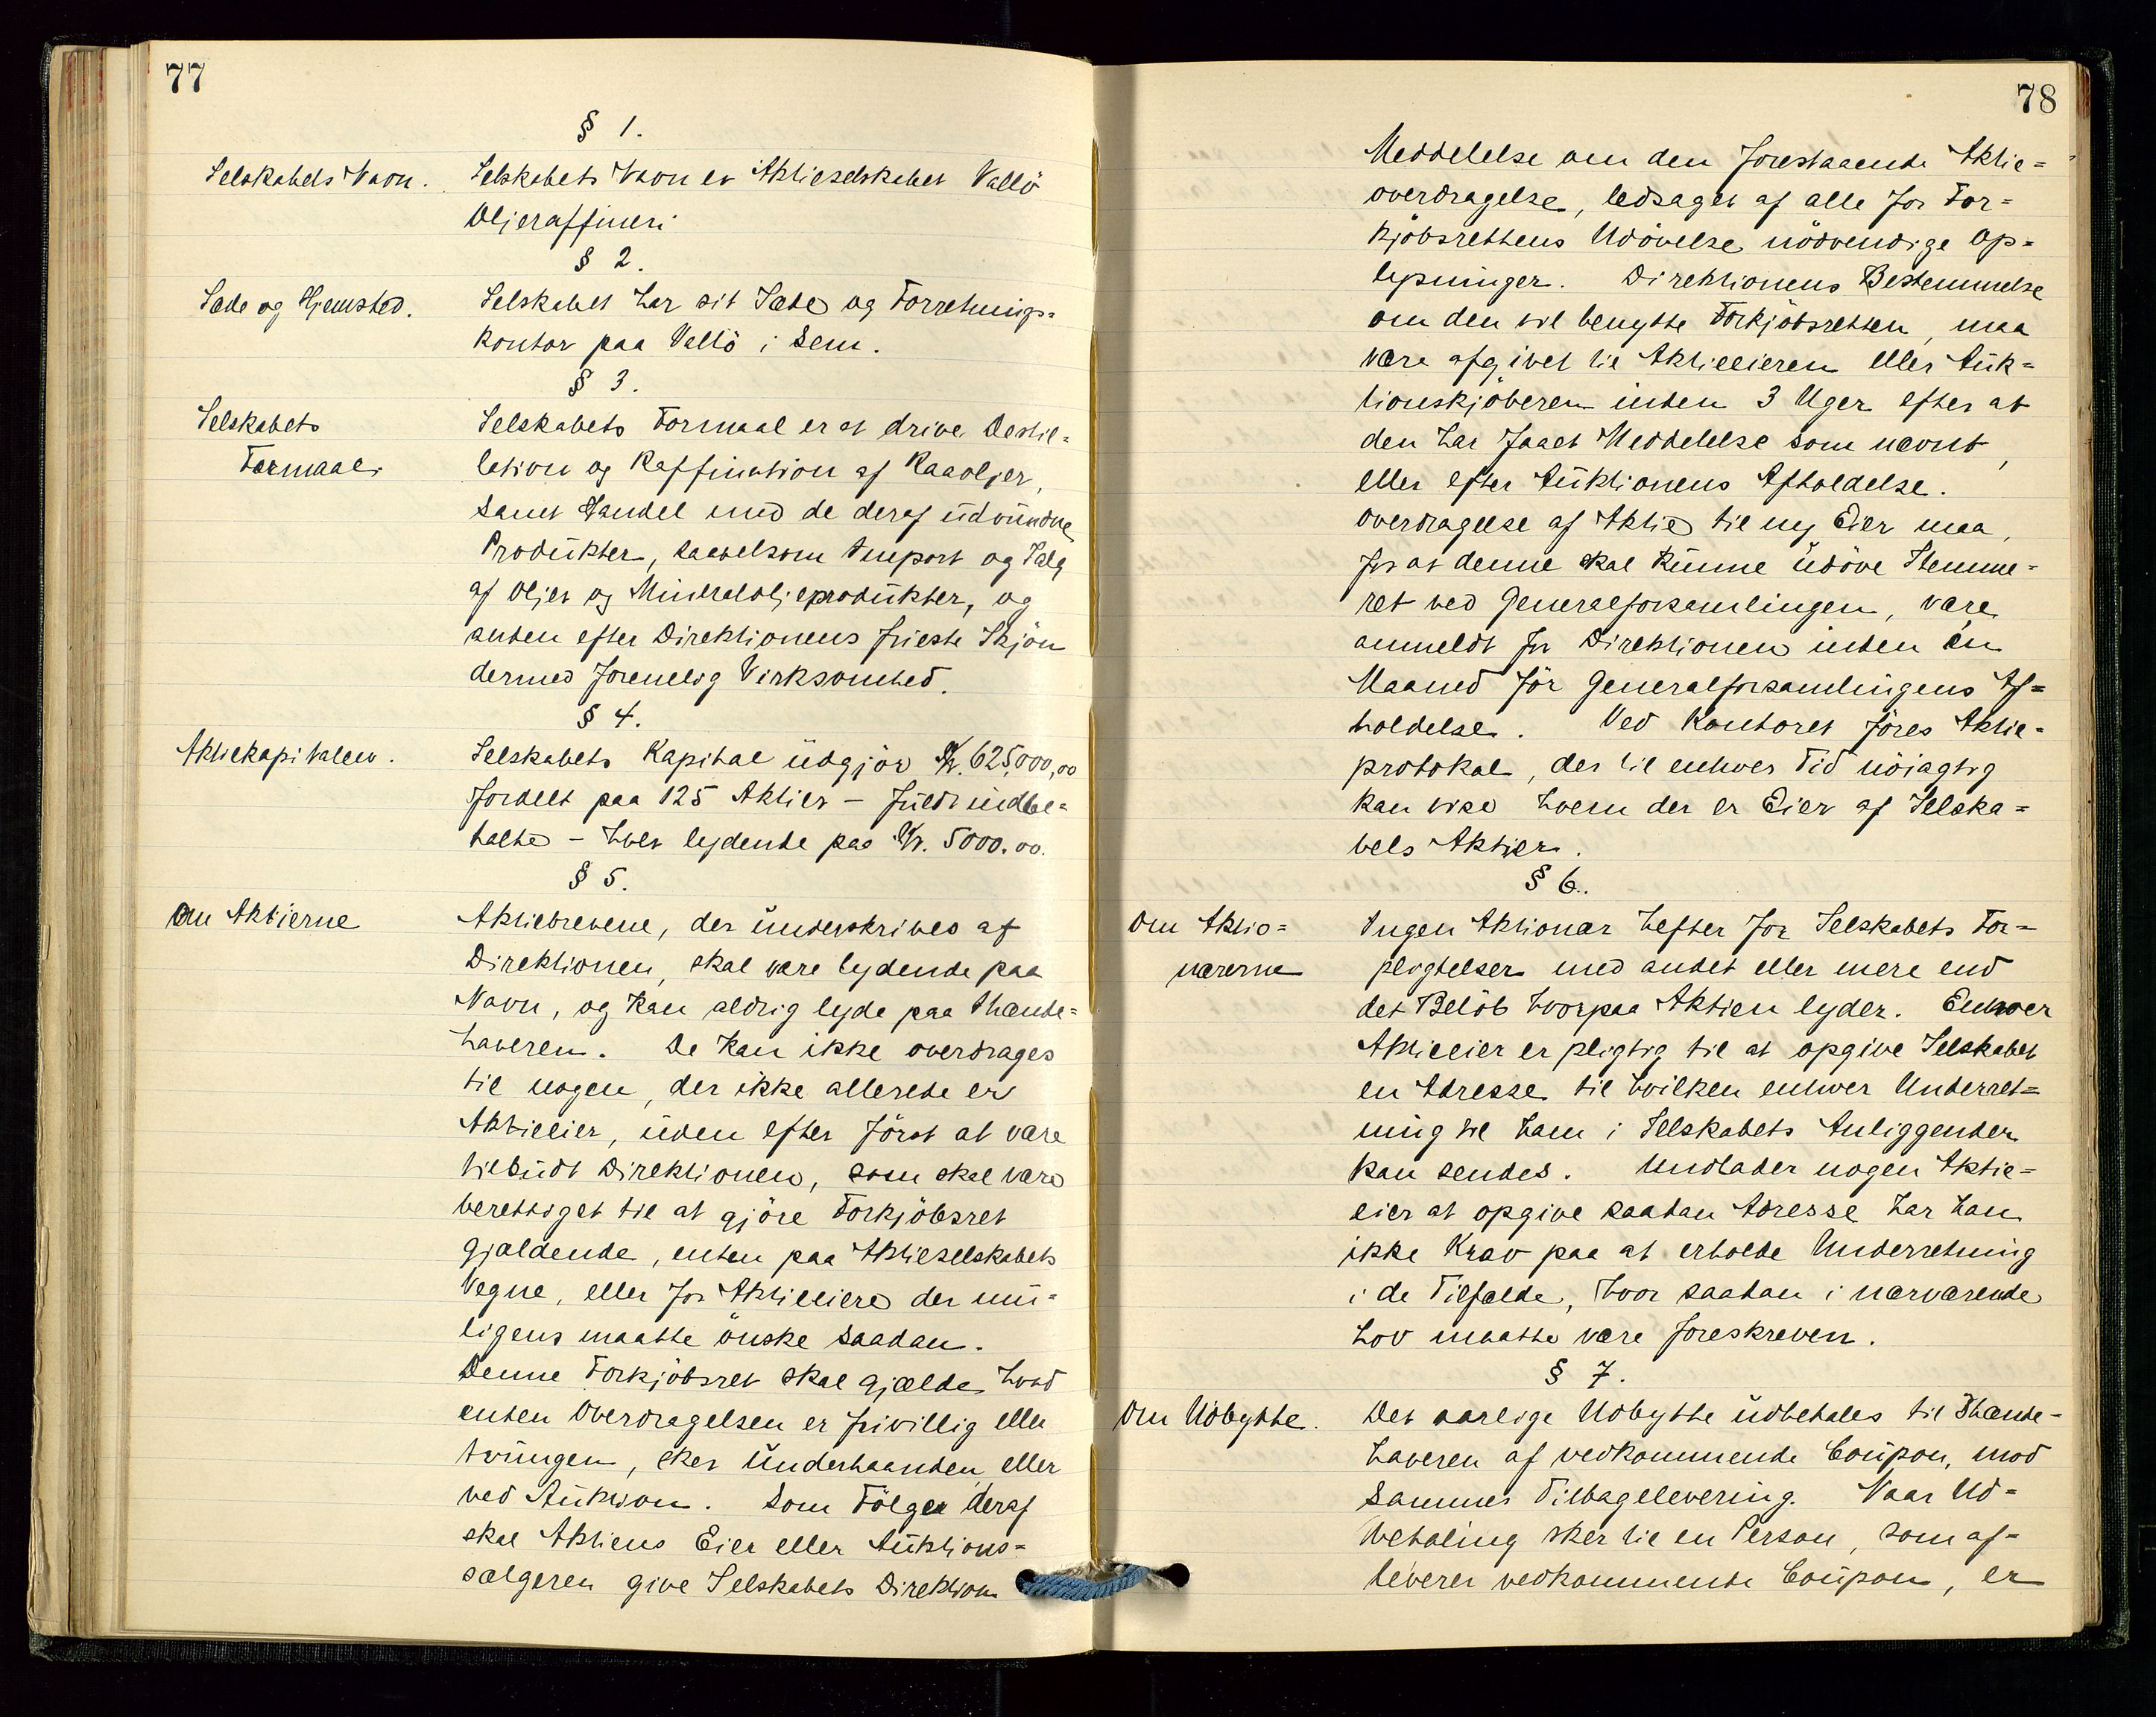 77
§ 1.
Selskabets Navn. Selskabets Navn er Aktieselskabet Vallö
Oljeraffineri
§ 2.
Sæde og Hjemsted. Selskabet har sit Sæde og Forretnings=
kontor paa Vallö i Sem.
§ 3.
Selskabets Selskabets Formaal er at drive Destil=
Formaal. lation og Raffination af Raaoljer,
samt Handel med de deraf udvundne
Produkter, saavelsom Import og Salg
af Oljer og Mineraloljeprodukter, og
anden efter Direktionens frieste Skjön
dermed forenelig Virksomhed.
§ 4.
Aktiekapitalen. Selskabets Kapital udgjör Kr. 625,000,00
fordelt paa 125 Aktier – fuldt indbe=
talte – hver lydende paa Kr. 5000.00.
§ 5.
Om Aktierne Aktiebrevene, der underskrives af
Direktionen, skal være lydende paa
Navn, og kan aldrig lyde paa Ihænde=
haveren. De kan ikke overdrages
til nogen, der ikke allerede er
Aktieeier, uden efter först at være
tilbudt Direktionen, som skal være
berettiget til at gjöre Forkjöbsret
gjældende, enten paa Aktieselskabets
Vegne, eller for Aktieeiere der mu=
ligens maatte önske saadan.
Denne Forkjöbsret skal gjælde hvad
enten Overdragelsen er frivillig eller
tvungen, sker underhaanden eller
ved Auktion. Som Fölge deraf
skal Aktiens Eier eller Auktions=
sælgeren give Selskabets Direktion
78
Meddelelse om den forestaaende Aktie=
overdragelse, ledsaget af alle for For=
kjöbsrettens Udövelse nödvendige Op=
lysninger. Direktionens Bestemmelse
om den vil benytte Forkjöbsretten, maa
være afgivet til Aktieeieren eller Auk=
tionskjöberen inden 3 Uger efter at
den har faaet Meddelelse som nævnt,
eller efter Auktionens Afholdelse.
Overdragelse af Aktie til ny Eier maa,
for at denne skal kunne udöve Stemme=
ret ved Generalforsamlingen, være
anmeldt for Direktionen inden én
Maaned för Generalforsamlingens Af=
holdelse. Ved Kontoret föres Aktie=
protokol, der til enhver Tid nöiagtig
kan vise hvem der er Eier af Selska=
bets Aktier.
§ 6.
Om Aktio= Ingen Aktionær hefter for Selskabets For=
nærerne pligtelser med andet eller mere end
det Belöb hvorpaa Aktien lyder. Enhver
Aktieeier er pligtig til at opgive Selskabet
en Adresse til hvilken enhver Underret=
ning til ham i Selskabets Anliggender
kan sendes. Undlader nogen Aktie=
eier at opgive saadan Adresse har han
ikke Krav paa at erholde Underretning
i de Tilfælde, hvor saadan i nærværende
Lov maatte være foreskreven.
§ 7.
Om Udbytte. Det aarlige Udbytte udbetales til Ihænde=
haveren af vedkommende Coupon, mod
sammes Tilbagelevering. Naar Ud=
betaling sker til en Person, som af=
leverer vedkommende Coupon, er